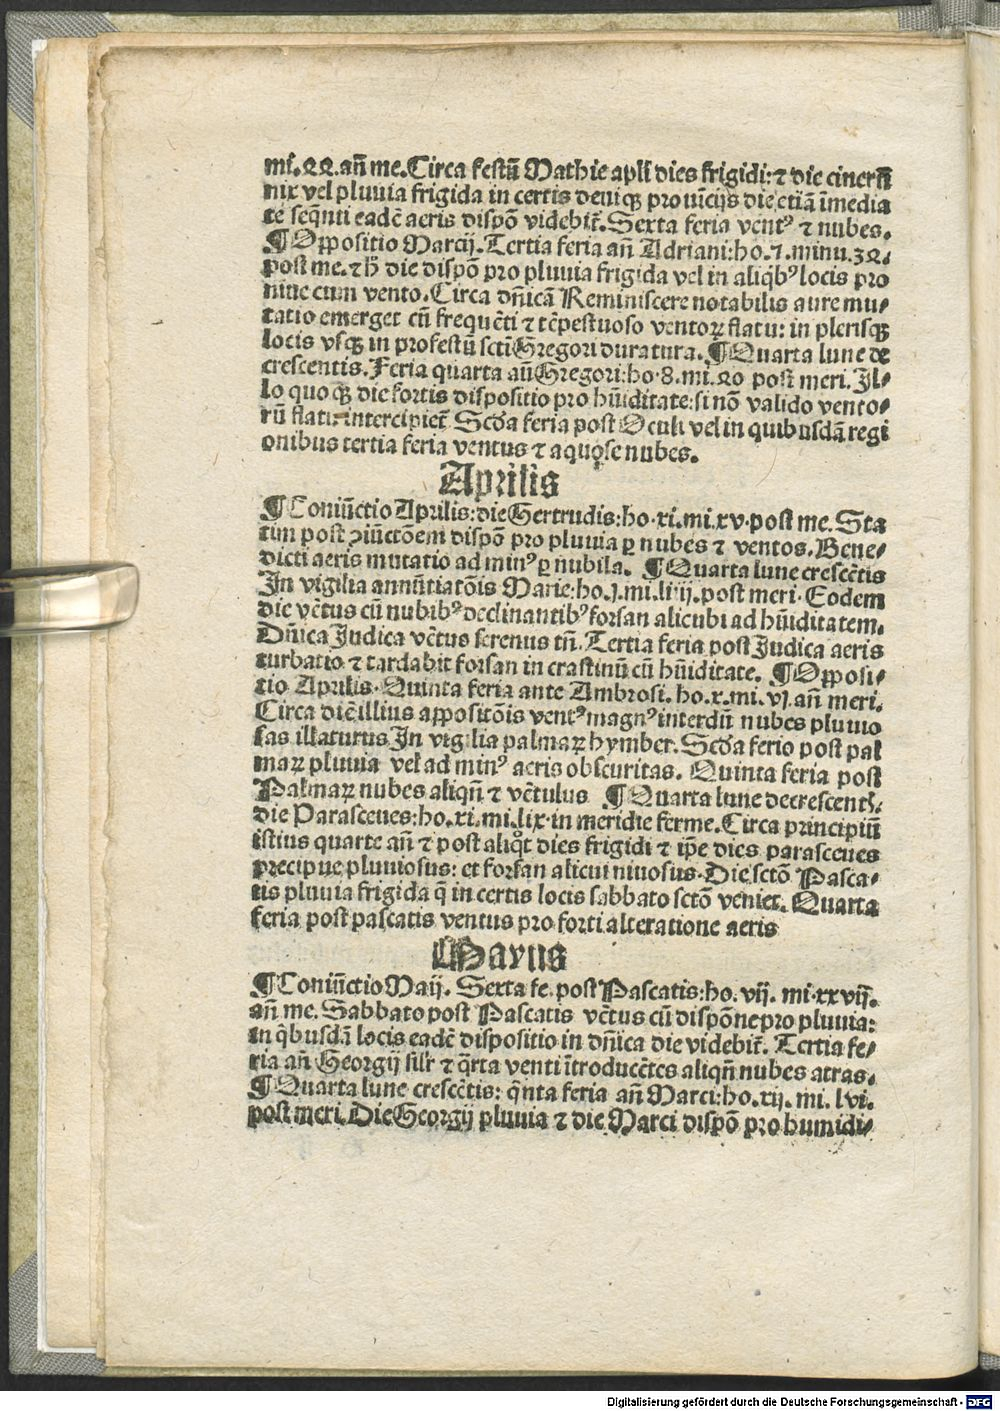 mi. 22. añ me. Circa festū Mathie apłi dies frigidi: ⁊ die cinerū
nix vel pluuia frigida in certis deniqꝫ prouincijs die etiā īmedia
te seqnti eadē aeris dispō videbit̃. Sexta feria ventꝰ ⁊ nubes.
¶ Oppositio Marcij. Tertia feria añ Adriani: ho. 7. minu. 32.
post me. ⁊ h̄ die dispō pro pluuia frigida vel in aliqbꝰ locis pro
niue cum vento. Circa dñicā Reminiscere notabilis aure mu/
tatio emerget cū frequēti ⁊ tēpestuoso ventoꝝ flatu: in plerisqꝫ
locis vsqꝫ in profestū scti Gregori duratura. ¶ Quarta lune de
crescentis. Feria quarta añ Gregori: ho. 8. mi. 20 post meri. Il/
lo quoqꝫ die fortis dispositio pro hūiditate: si nō valido vento/
rū flatu intercipiet̃. Scđa feria post Oculi vel in quibusdā regi
onibus tertia feria ventus ⁊ aquose nubes.
Aprilis
¶ Coniūctio Aprilis: die Gertrudis: ho. xi. mi. xv. post me. Sta
tim post ꝯiūctōem dispō pro pluuia ꝑ nubes ⁊ ventos. Bene/
dicti aeris mutatio ad minꝰ ꝑ nubila. ¶ Quarta lune crescētis
In vigilia annūtiatōis Marie: ho. j. mi. liiij. post meri. Eodem
die vētus cū nubibꝰ declinantibꝰ forsan alicubi ad hūiditatem.
Dñica Judica vētus serenus tñ. Tertia feria post Judica aeris
turbatio ⁊ tardabit forsan in crastinū cū hūiditate. ¶ Opposi/
tio Aprilis. Quinta feria ante Ambrosi. ho. x. mi. vj. añ meri.
Circa diē illius appositōis ventꝰ magnꝰ interdū nubes pluuio
sas illaturus In vigilia palmaꝝ hymber. Scđa ferio post pal
maꝝ pluuia vel ad minꝰ aeris obscuritas. Quinta feria post
Palmaꝝ nubes aliqñ ⁊ vētulus ¶ Quarta lune decrescent̃.
die Parasceues: ho. xi. mi. lix. in meridie ferme. Circa principiū
istius quarte añ ⁊ post aliqͦt dies frigidi ⁊ ip̄e dies parasceues
precipue pluuiosus: et forsan alicui niuosus. Die sctō Pasca/
tis pluuia frigida q̄ in certis locis sabbato sctō veniet. Quarta
feria post pascatis ventus pro forti alteratione aeris
Mayus
¶ Coniūctio Maij. Sexta fe. post Pascatis: ho. vij. mi. xxvij.
añ me. Sabbato post Pascatis vētus cū dispōne pro pluuia:
in qbusdā locis eadē dispositio in dñica die videbit̃. Tertia fe/
ria añ Georgij silr ⁊ qrta venti ītroducētes aliqñ nubes atras.
¶ Quarta lune crescētis: qnta feria añ Marci: ho. xij. mi. lvi.
post meri. Die Georgij pluuia ⁊ die Marci dispō pro humidi/
Digitalisierung gefördert durch die Deutsche Forschungsgemeinschaft - DFG